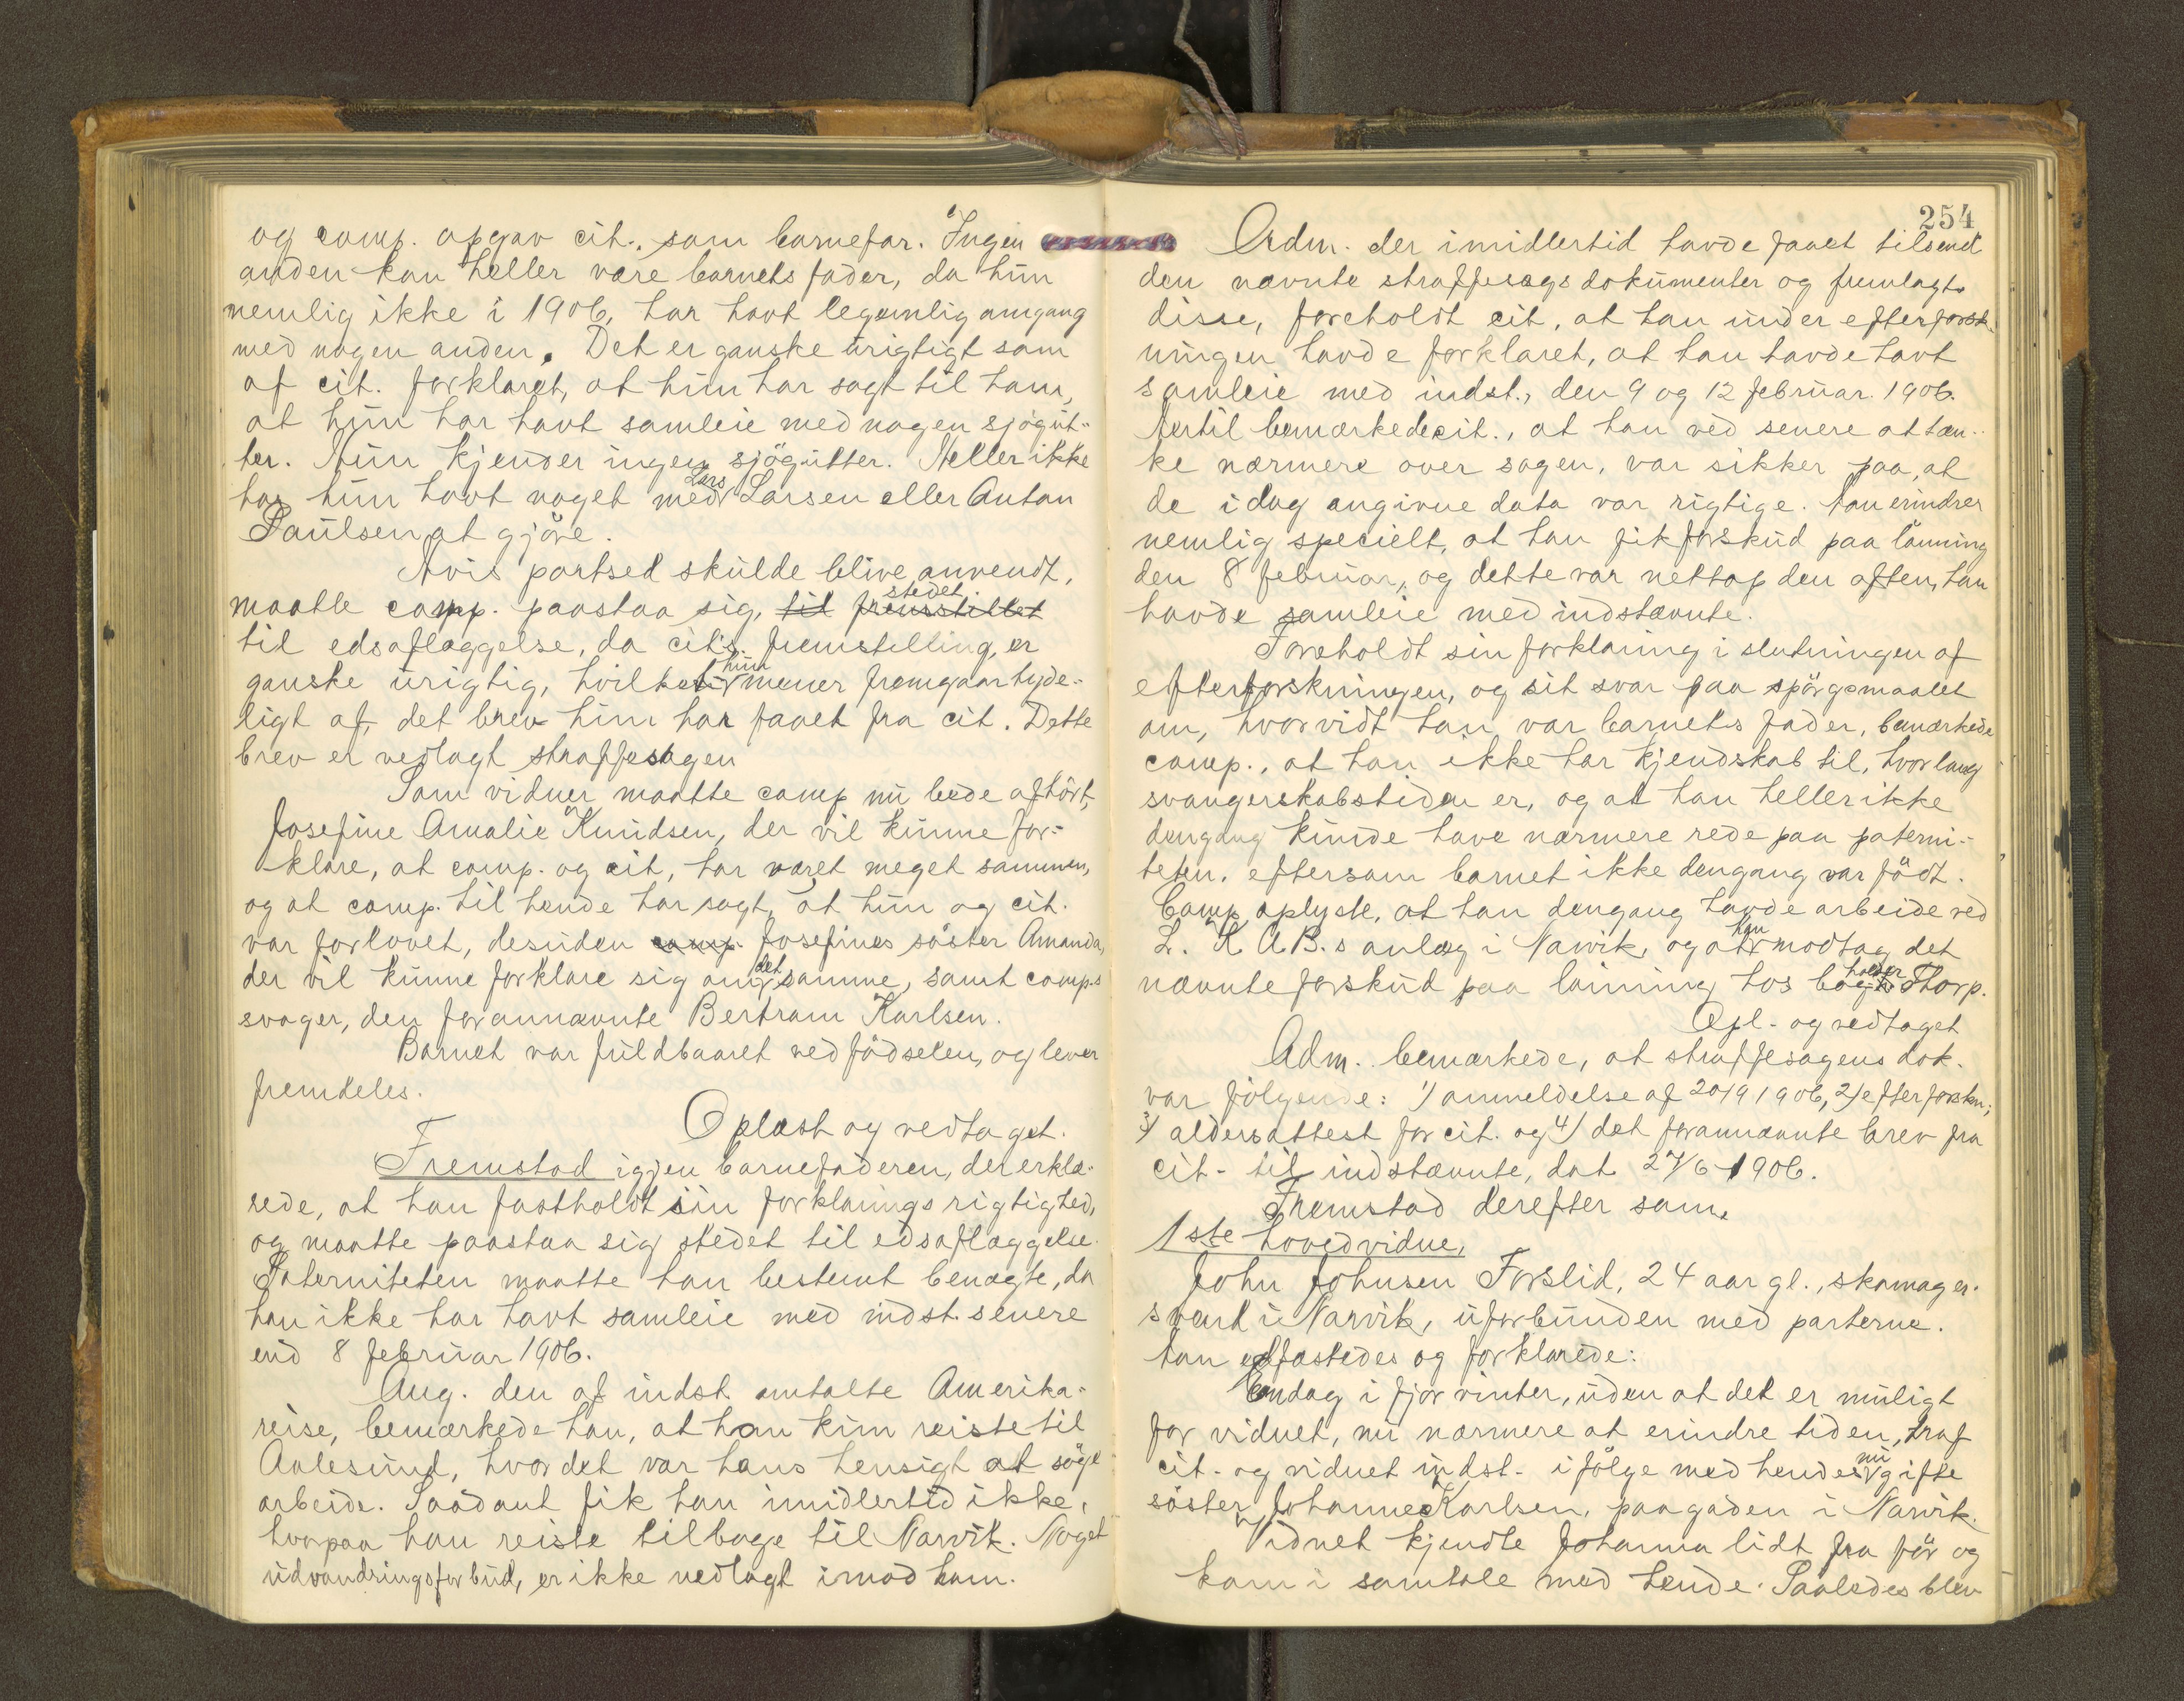 og comp. opgav cit., som barnefar. Ingen
anden kan heller være barnets fader, da hun
nemlig ikke i 1906, har havt legemlig omgang
med nogen anden. Det er ganske urigtigt som
af cit. forklaret, at hun har sagt til ham,
at hun har havt samleie med nogen sjøgut-
ter. Hun kjender ingen sjögutter. Heller ikke
har hun havt noget med Lars Larsen eller Anton
Paulsen at gjöre.
Hvis partsed skulde blive anvendt,
maatte comp. paastaa sig, til fremstillet stedet
til edsaflæggelse, da cit's. fremstilling, er
ganske urigtig, hvilket hun mener fremgaar tyde-
ligt af det brev hun har faaet fra cit. Dette
brev er vedlagt straffesagen
Som vidner maatte comp nu bede afhört,
Josefine Amalie Knudsen, der vil kunne for-
klare, at comp. og cit, har været meget sammen,
og at comp. til hende har sagt, at hun og cit.
var forlovet, desuden comp. Josefines söster Amanda,
der vil kunne forklare sig om det samme, samt comp.s
svoger, den forannævnte Bertram Karlsen.
Barnet var fuldbaaret ved födselen, og lever
fremdeles.
Oplæst og vedtaget.
Fremstod igjen barnefaderen, der erklæ-
rede, at han fastholdt sin forklarings rigtighed,
og maatte paastaa sig stedet til edsaflæggelse.
Paterniteten maatte han bestemt benægte, da
han ikke har havt samleie med indst. senere
end 8 februar 1906.
Ang. den af indst. omtalte Amerika-
reise, bemærkede han, at han kun reiste til
Aalesund, hvor det var hans hensigt at söge
arbeide. Saadant fik han imidlertid ikke,
hvorpaa han reiste tilbage til Narvik. Noget
udvandringsforbud, er ikke nedlagt imod ham.
254
Adm. der imidlertid havde faaet tilsendt
den nævnte straffesags dokumenter og fremlagt
disse, foreholdt cit, at han under efterforsk-
ningen havde forklaret, at han havde havt
samleie med indst., den 9 og 12 februar. 1906.
Hertil bemærkede cit., at han ved senere at tæn-
ke nærmere over sagen, var sikker paa, at
de idag angivne data var rigtige. Han erindrer
nemlig specielt, at han fik forskud paa lönning
den 8 februar, og dette var nettop den aften, han
havde samleie med indstævnte.
Foreholdt sin forklaring i slutningen af
efterforskningen, og sit svar paa spörgsmaalet
om, hvorvidt han var barnets fader, bemærkede
comp., at han ikke har kjendskab til, hvor lang
svangerskabstiden er, og at han heller ikke
dengang kunde have nærmere rede paa paterni-
teten. eftersom barnet ikke dengang var födt.
Comp oplyste, at han dengang havde arbeide ved
L. K A B.s anlæg i Narvik, og at han modtog det
nævnte forskud paa lönning hos bogholder Thorp.
Opl. og vedtaget
Adm. bemærkede, at straffesagens dok.
var fölgende: 1) anmeldelse af 20/9 1906, 2) efterforskn;
3) aldersattest for cit. og 4) det forannævnte brev fra
cit- til indstævnte, dat 27/6 1906.
Fremstod derefter som
1ste hovedvidne,
John Johnsen Forslid, 24 aar gl., skomager-
svend i Narvik, uforbunden med parterne.
Han edfæstedes og forklarede:
Endag i fjor vinter, uden at det er muligt
for vidnet, nu nærmere at erindre tiden, traf
cit- og vidnet indst- i fölge med hendes nu gifte
söster Johanne Karlsen, paa gaden i Narvik.
Vidnet kjendte Johanna lidt fra för og
kom i samtale med hende. Saaledes blev